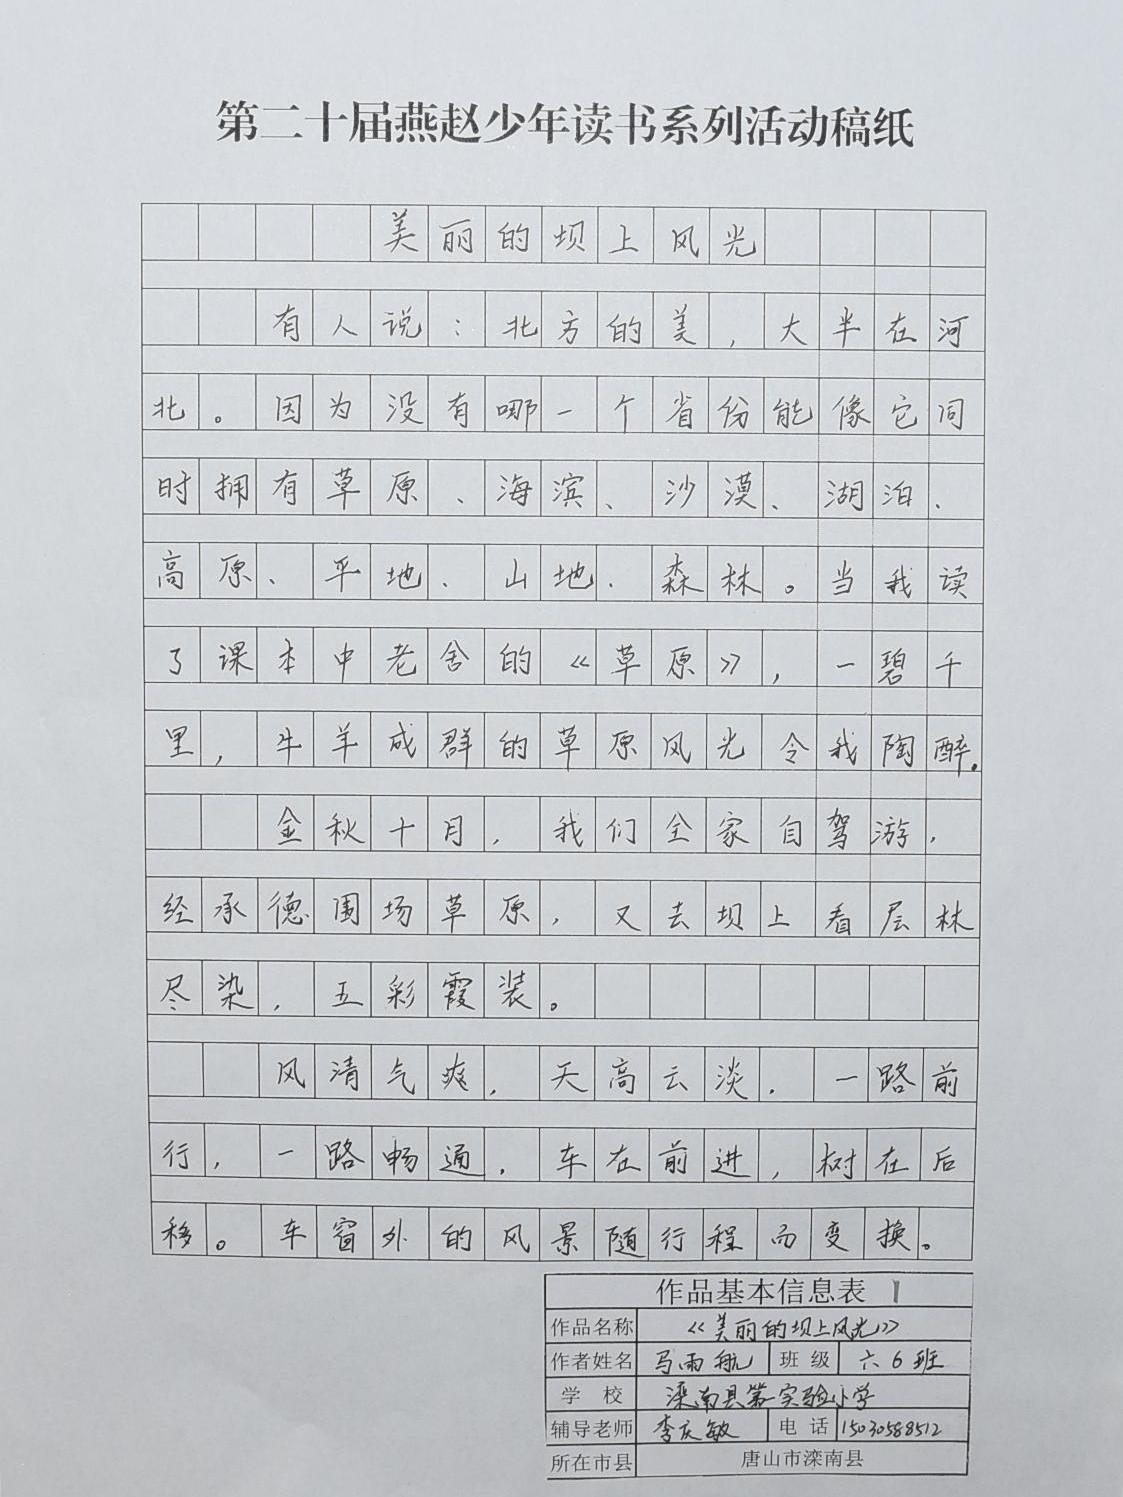 第二十届燕赵少年读书系列活动稿纸
美丽的坝上风光
有人说：北方的美，大半在河
北。因为没有哪一个省份能像它同
时拥有草原、海滨、沙漠、湖泊、
高原、平地、山地、森林。当我读
了课本中老舍的《草原》，一碧千
里，牛羊成群的草原风光令我陶醉。
金秋十月，我们全家自驾游，
经承德围场草原，又去坝上看层林
尽染，五彩霞装。
风清气爽，天高云淡，一路前
行，一路畅通，车在前进，树在后
移。车窗外的风景随行程而变换。
作品基本信息表 1
作品名称 《美丽的坝上风光》
作者姓名 马雨航 班级 六6班
学校 滦南县第一实验小学
辅导老师 李庆敏 电话 15030588512
所在市县 唐山市滦南县